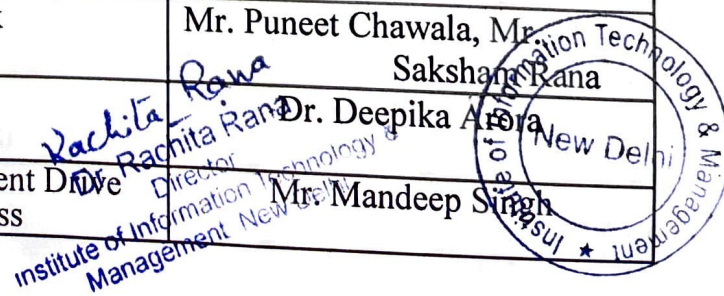 Mr. Puneet Chawala, Mr.
Saksham Rana
Dr. Deepika Arora
ent Drive
ss
Mr. Mandeep Singh
Rachita Rana
Dr. Rachita Rana
Director
Institute of Information Technology &
Management New Delhi
Institute of Information Technology & Management
New Delhi